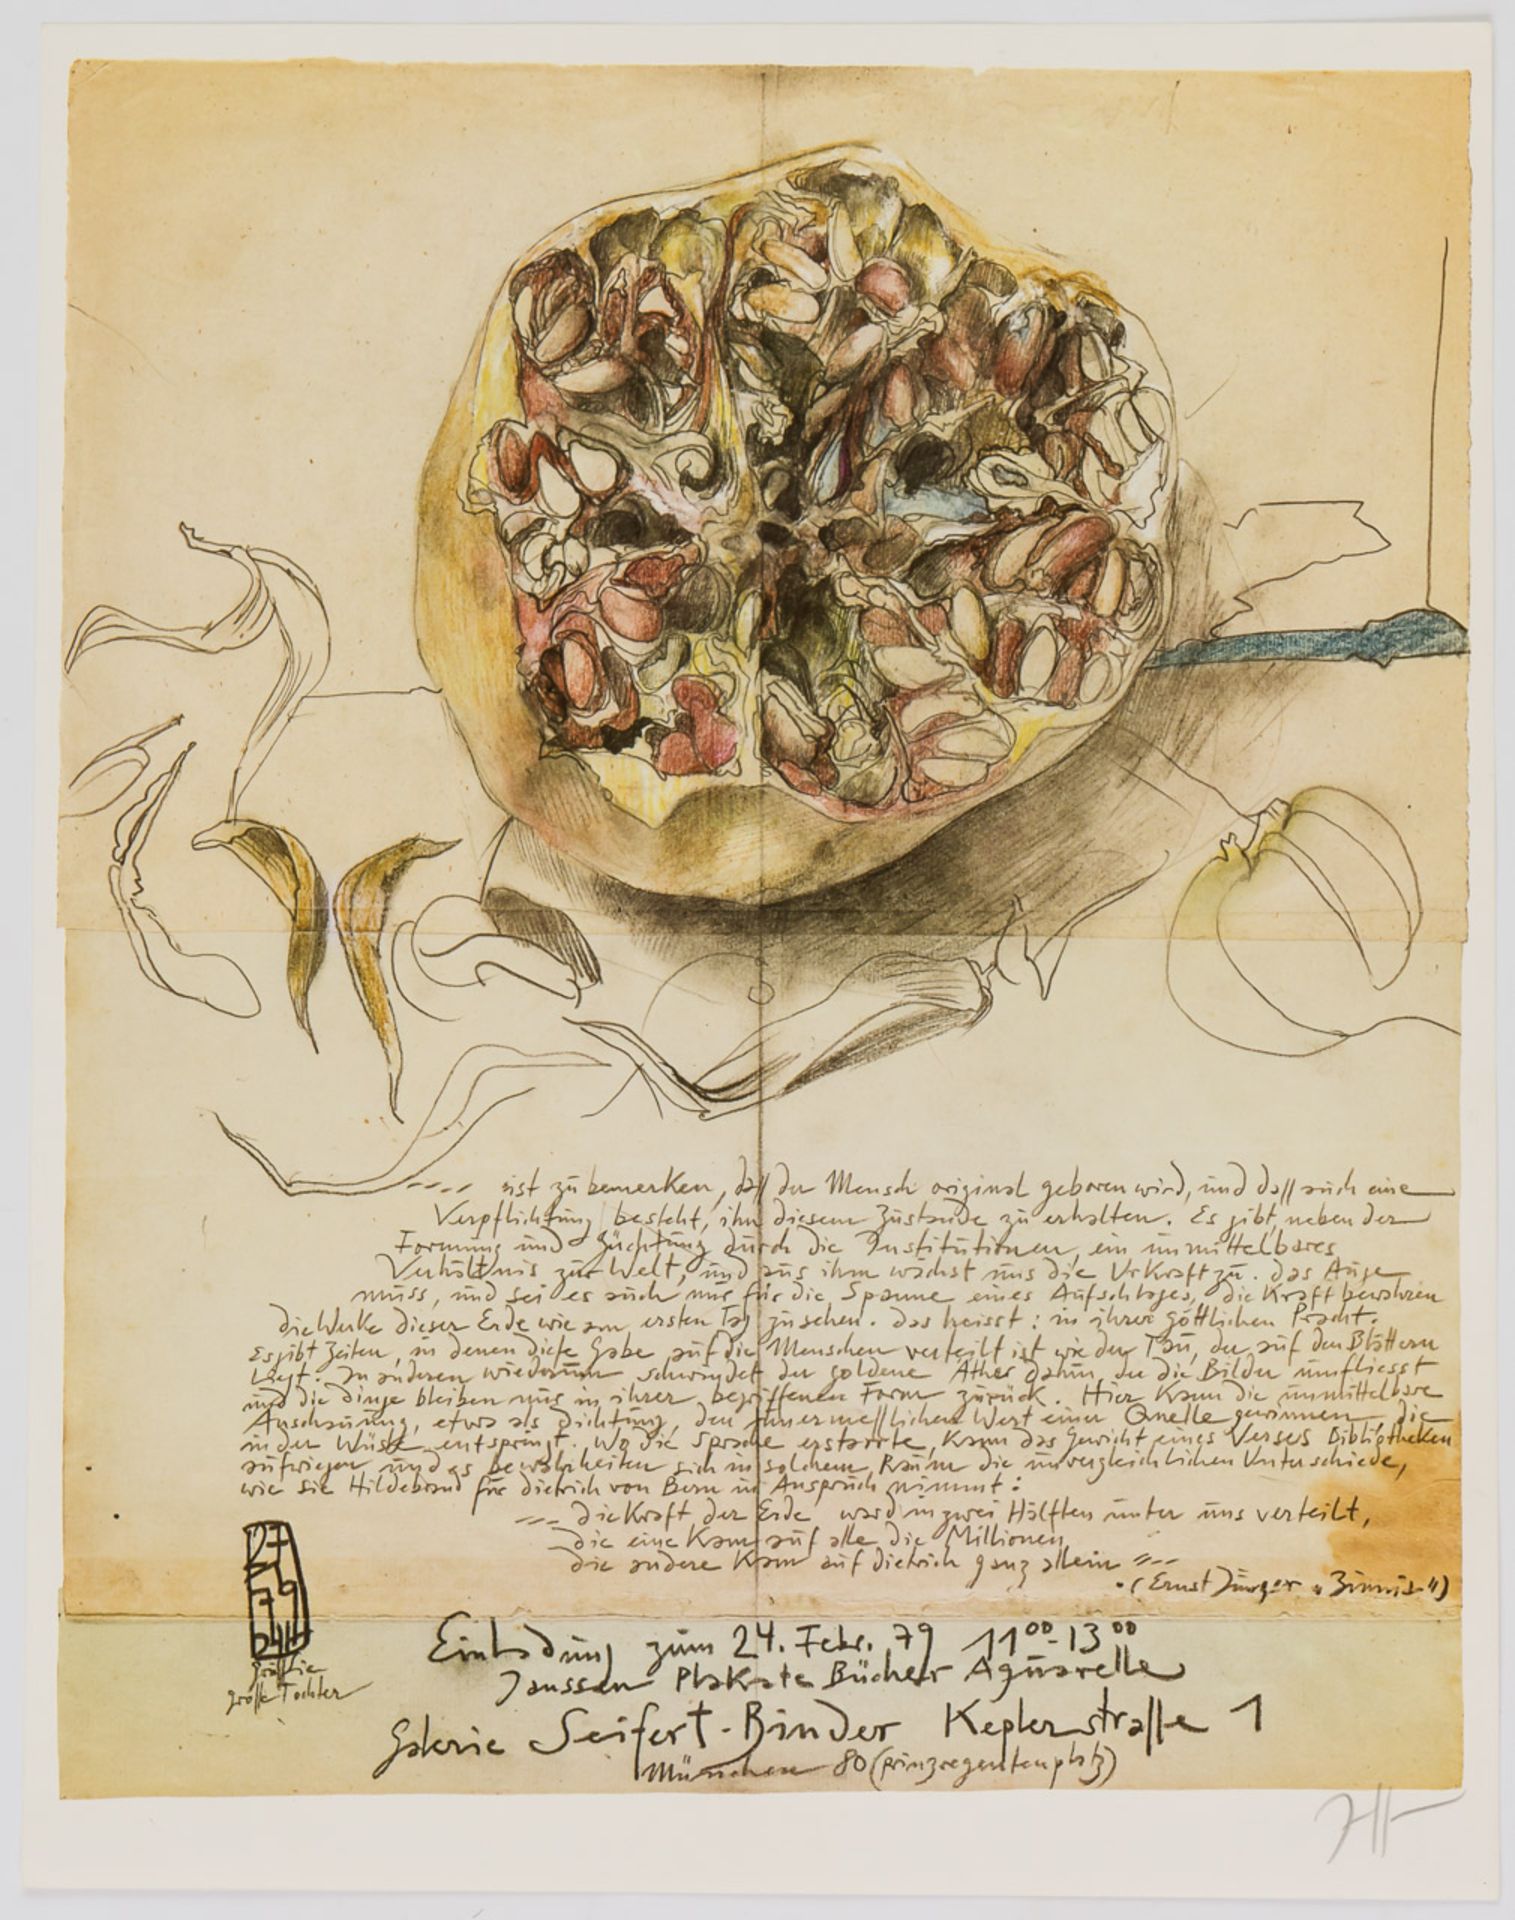 ---- ist zu bemerken, daß der Mensch original geboren wird, und daß auch eine
Verpflichtung besteht, ihn diesem Zustande zu erhalten. Es gibt neben der
Formung und Züchtung durch die Institutionen, ein unmittelbares
Verhältnis zur Welt, und aus ihm wächst uns die Urkraft zu. Das Auge
muss, und sei es auch nur für die Spanne eines Aufschlages, die Kraft bewahren
die Werke dieser Erde wie am ersten Tag zu sehen. das heisst: in ihrer göttlichen Pracht.
Es gibt Zeiten, in denen diese Gabe auf die Menschen verteilt ist wie der Tau, der auf den Blättern
liegt. In anderen wiederum schwindet der goldene Äther dahin, der die Bilder umfliesst
und die Dinge bleiben nur in ihrer begriffenen Form zurück. Hier kann die unmittelbare
Anschauung, etwa als Dichtung, den unermeßlichen Wert einer Quelle gewinnen, die
in der Wüste entspringt. Wo die Sprache erstarrte, kann das Gewicht eines Verses Bibliotheken
aufwiegen und es bewahrheiten sich in solchem Raum die unvergleichlichen Unterschiede,
wie sie Hildebrand für Dietrich von Bern in Anspruch nimmt:
--- die Kraft der Erde ward in zwei Hälften unter uns verteilt,
die eine kam auf alle die Millionen
die andere kam auf Dietrich ganz allein "--
(Ernst Jünger
große Tochter
Einladung zum 24. Febr. 79 11 00 - 13 00
Janssen Plakate Bücher Aquarelle
Galerie Seifert-Binder Keplerstraße 1
München 80 (Prinzregentenplatz)